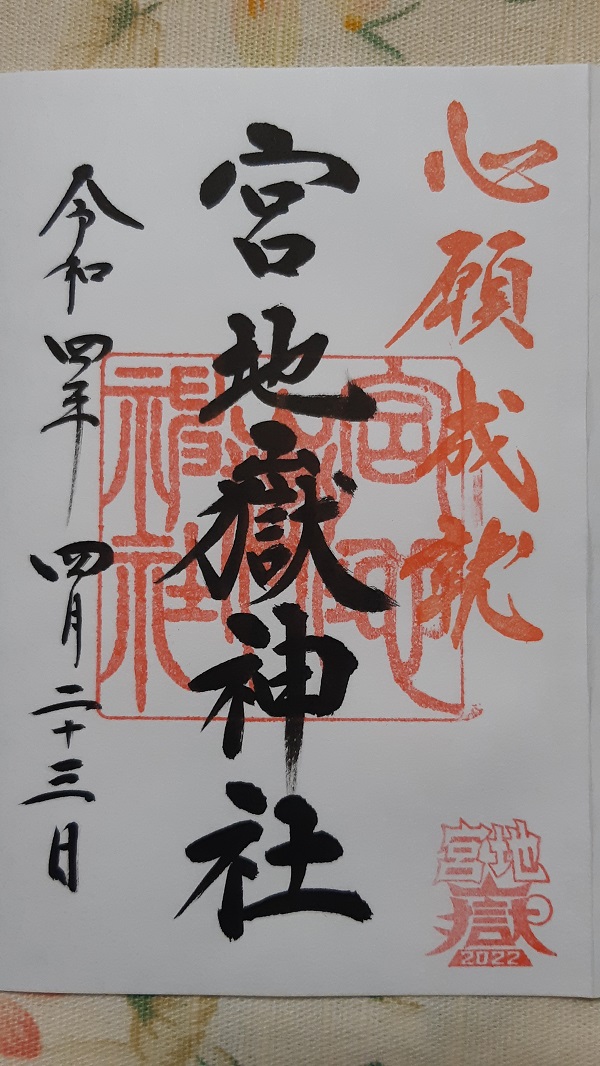 心願成就
宮地嶽神社
令和四年四月二十三日
宮地嶽神社
宮地
嶽
2022